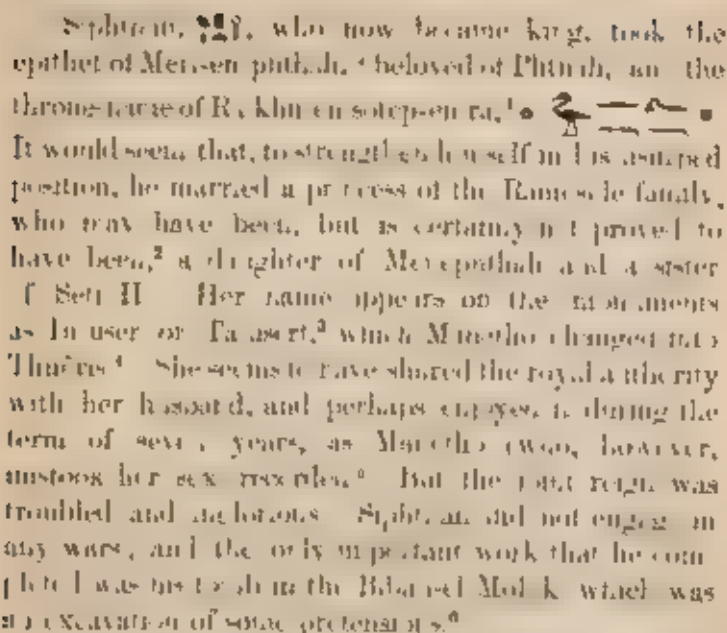 Siphthah, who now became king, took the
epithet of Meri-en-phthah, 'beloved of Phthah,' and the
throne-name of Ra-khu-en-sotep-en-ra,¹
It would seem that, to strengthen himself in his assumed
position, he married a princess of the Rameside family,
who may have been, but is certainly not proved to
have been,² a daughter of Menephthah and a sister
of Seti II. Her name appears on the monuments
as Ta-user or Ta-usert,³ which Manetho changed into
She seems to have shared the royal authority
with her husband, and perhaps enjoyed it during the
term of seven years, as Manetho (who, however,
mistook her sex) But the joint reign was
troubled and inglorious. Siphthah did not engage in
any wars, and the only important work that he com-
pleted was his tomb in the Biban-el-Moluk, which was
an excavation of some pretensions.⁶